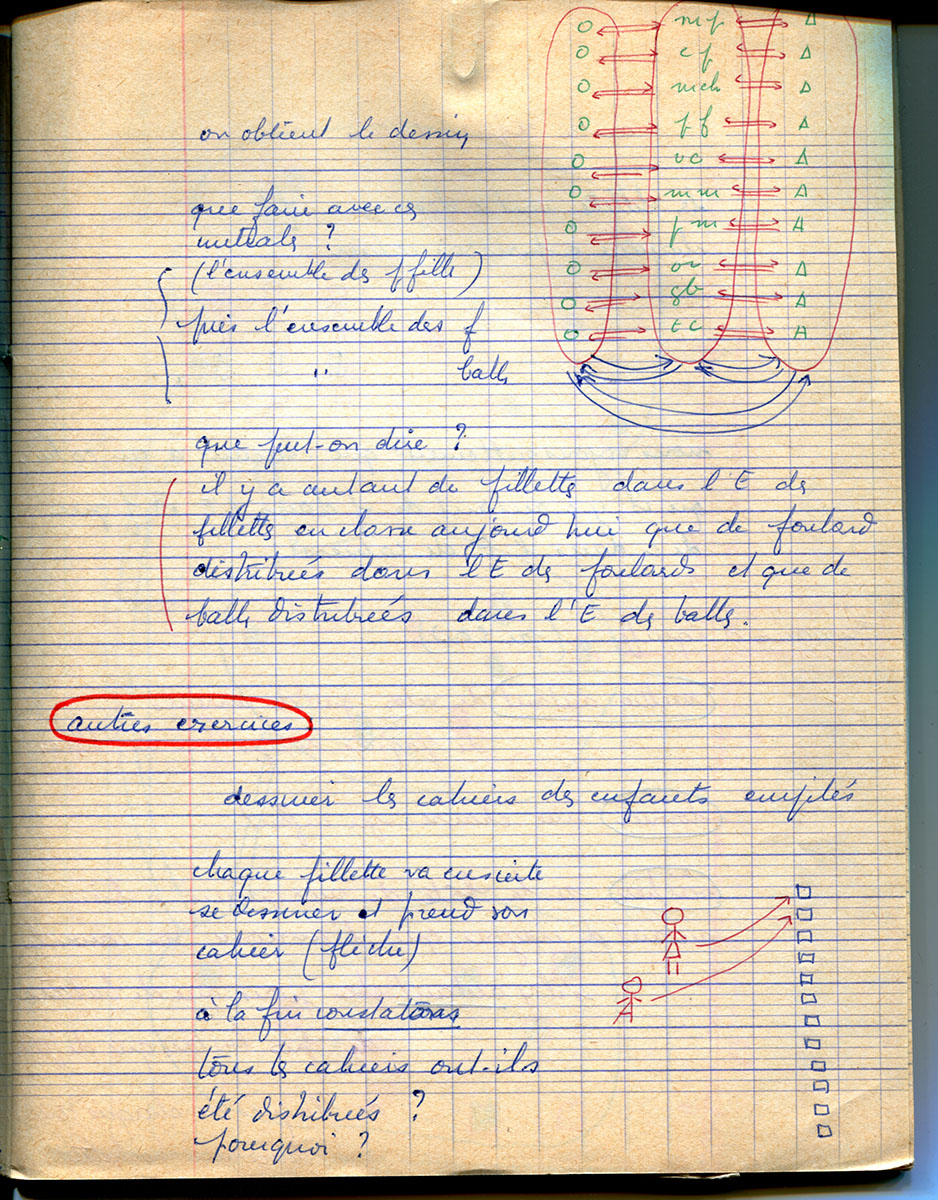 O mf Δ
O cf Δ
O mch Δ
O pf Δ
O vc Δ
O mm Δ
O pm Δ
O Δ
O gb Δ
O tc Δ
on obtient le dessin,
que faire avec ces
initiales ?
(l'ensemble des p fille)
puis l'ensemble des f
" balles
que peut-on dire ?
il y a autant de fillettes dans l'E des
fillettes en classe aujourd'hui que de foulard
distribués dans l'E des foulards et que de
balles distribuées dans l'E des balles.
autres exercices
dessiner les cahiers des enfants empilés
chaque fillette va ensuite
se dessiner et prend son
cahier (flèche)
à la fin constatons
tous les cahiers ont-ils
été distribués ?
pourquoi ?